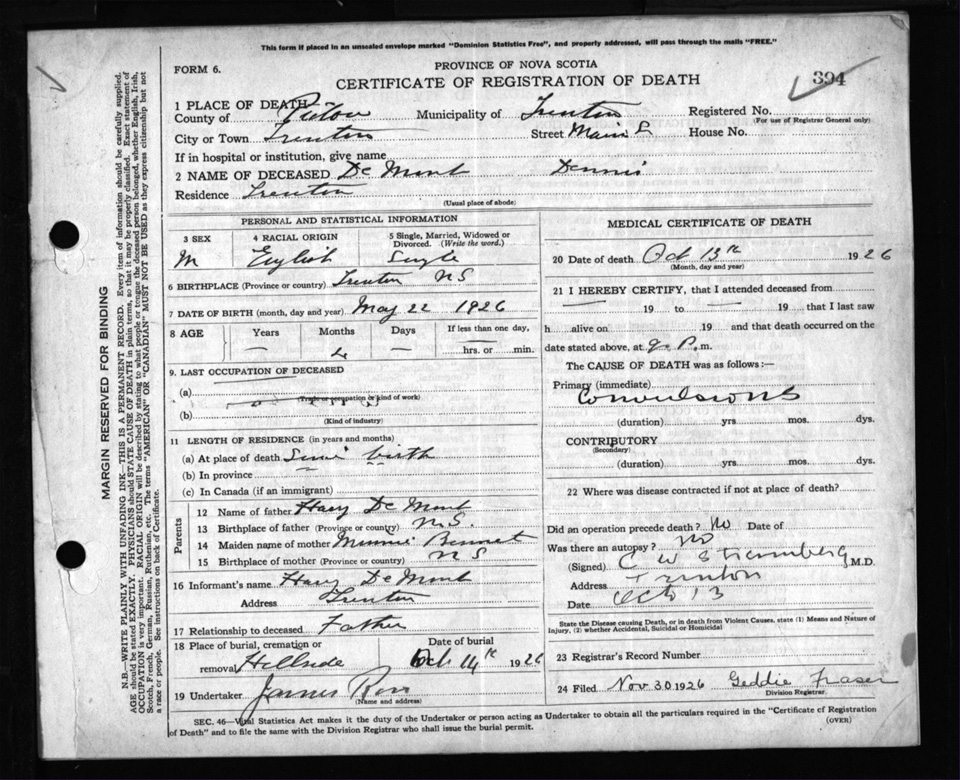 This form if placed in an unsealed envelope marked "Dominion Statistics Free", and properly addressed, will pass through the mails "FREE."
FORM 6.
PROVINCE OF NOVA SCOTIA
CERTIFICATE OF REGISTRATION OF DEATH
394
1 PLACE OF DEATH
County of Pictou Municipality of Trenton Registered No.
(For use of Registrar General only)
City or Town Trenton Street Main St House No.
If in hospital or institution, give name
2 NAME OF DECEASED De Mont Dennis
Residence Trenton
(Usual place of abode)
PERSONAL AND STATISTICAL INFORMATION
3 SEX 4 RACIAL ORIGIN 5 Single, Married, Widowed or Divorced. (Write the word.)
M English Single
6 BIRTHPLACE (Province or country) Trenton N S
7 DATE OF BIRTH (month, day and year) May 22 1926
8 AGE Years Months Days If less than one day,
— 4 — hrs. or min.
9. LAST OCCUPATION OF DECEASED
(a)
(Trade or occupation or kind of work)
(b)
(Kind of industry)
11 LENGTH OF RESIDENCE (in years and months)
(a) At place of death Since birth
(b) In province
(c) In Canada (if an immigrant)
Parents
12 Name of father Harry De Mont
13 Birthplace of father (Province or country) N.S.
14 Maiden name of mother Minnie Bennet
15 Birthplace of mother (Province or country) N S
16 Informant's name Harry De Mont
Address Trenton
17 Relationship to deceased Father
18 Place of burial, cremation or removal Hillside Date of burial Oct 14th 1926
19 Undertaker James Ross
(Name and address)
MEDICAL CERTIFICATE OF DEATH
20 Date of death Oct 13th 1926
(Month, day and year)
21 I HEREBY CERTIFY, that I attended deceased from
— 19 to — 19 that I last saw
h alive on — 19 and that death occurred on the
date stated above, at 9 P.m.
The CAUSE OF DEATH was as follows:—
Primary (immediate)
Convulsions
(duration) yrs mos. dys.
CONTRIBUTORY
(Secondary)
(duration) yrs mos. dys.
22 Where was disease contracted if not at place of death?
Did an operation precede death? No Date of
Was there an autopsy? No
(Signed) C W Stramberg M.D.
Address Trenton
Date Oct 13
State the Disease causing Death, or in death from Violent Causes, state (1) Means and Nature of
Injury, (2) whether Accidental, Suicidal or Homicidal
23 Registrar's Record Number
24 Filed Nov 30 1926 Geddie Fraser
Division Registrar
SEC. 46—Vital Statistics Act makes it the duty of the Undertaker or person acting as Undertaker to obtain all the particulars required in the "Certificate of Registration
of Death" and to file the same with the Division Registrar who shall issue the burial permit.
(OVER)
MARGIN RESERVED FOR BINDING
N.B.—WRITE PLAINLY WITH UNFADING INK—THIS IS A PERMANENT RECORD. Every item of information should be carefully supplied.
AGE should be stated EXACTLY. PHYSICIANS should STATE CAUSE OF DEATH in plain terms, so that it may be properly classified. Exact statement of
OCCUPATION is very important. RACIAL ORIGIN will be described by stating to what people or tongue the deceased person belonged, whether English, Irish,
Scotch, French, German, Russian, Ruthenian, etc. The terms "AMERICAN" OR "CANADIAN" MUST NOT BE USED as they express citizenship but not
a race or people. See instructions on back of Certificate.